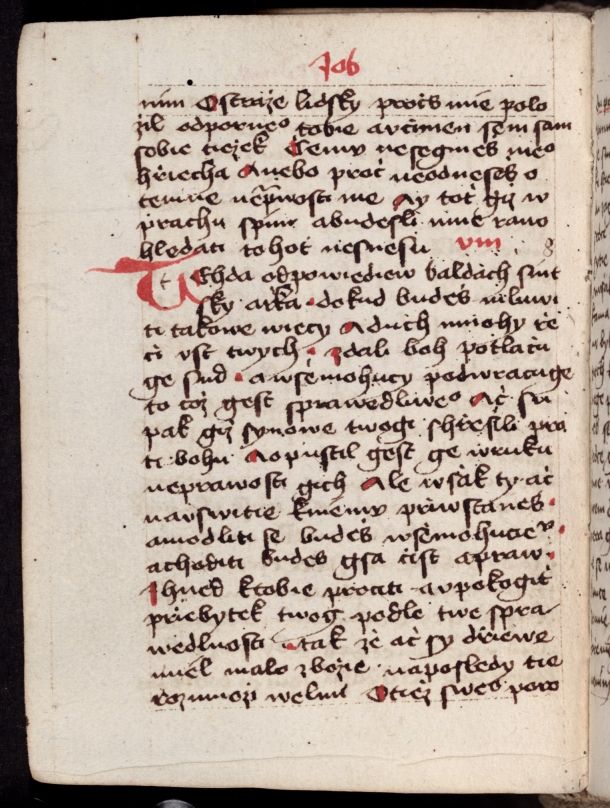 Job
nim O strazie lidsky procżs mie polo
zil odporneo tobie avcinien sem sam
sobie tiezek Czemv nesegmeš meo
hřiecha Anebo procż neodneseš o
temne neprawosti me Ay tot giz w
prachu spim abudešli mne rano
hledati tohot nesnesu viii 8
Tehda odpowiediew baldach suit
sky arka dokud budeš mluwi
ti takowe wiecy Aduch mnohy rze
czi vst twych zdali boh potlaczu
ge sud awšemohucy podwracuge
to coz gest sprawedliweo Acż su
pak giz synowe twogi shrzešili pro
ti bohu Aopustil gest ge wruku
neprawosti gich Ale wšak ty acż
naswitie kniemv przwstaneš
amodliti se budeš wšemohucieo
achoditi budeš gsa czist apraw
Ihned ktobie procżiti avpokogit
przebytek twog podle twe spra
wedlnosti tak ze acż sy drziewe
miel malo zbozie naposledy tie
rozmnozi welmi Otiež sweo poro